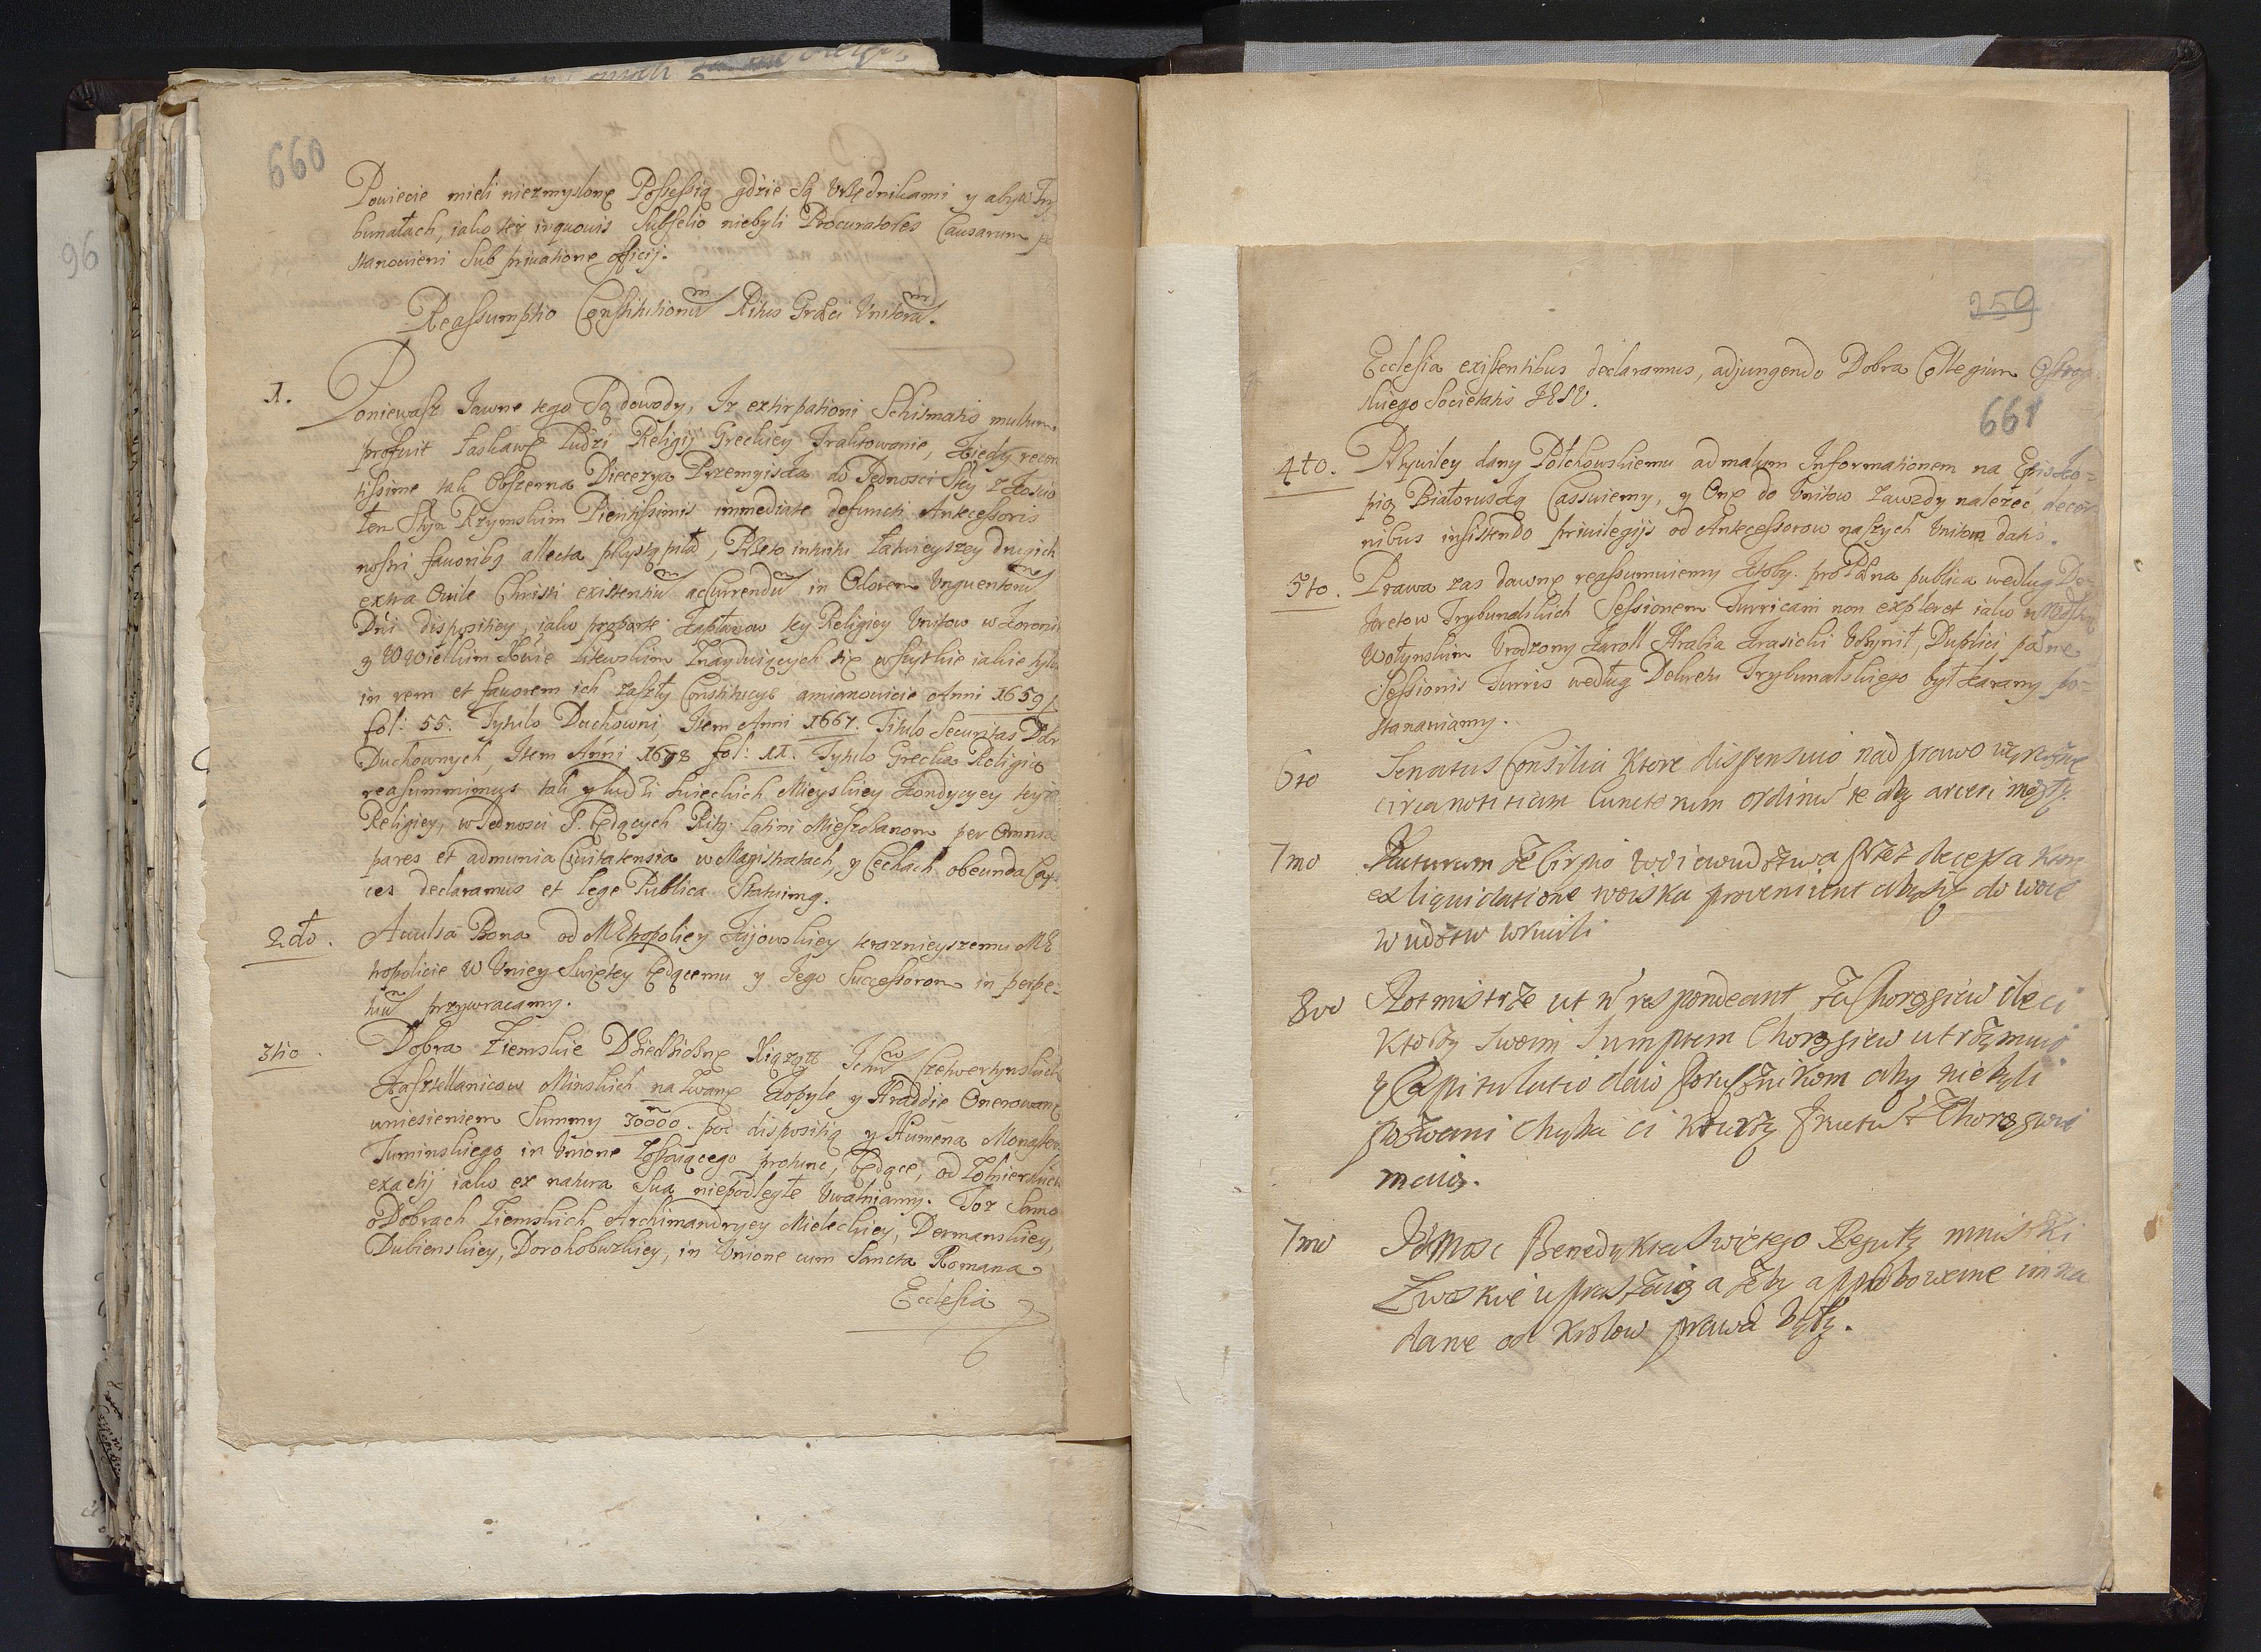 660
Powiecie mieli niezmyslonę Possessią gdzie są Vrzędnikami y aby w Try
bunałach, iako też in quovis Subsellio niebyli Procuratores Causarum po
stanowieni sub privatione officij.
Reassumptio Constitutionũ Ritus Græci Unitorũ.
1. Poniewasz Jawne tego są dowody, Iz extirpationi Schismatis multum
profuit Łaskawe ludzi Religij Greckiey Traktowanie, kiedy recen
tissime tak Obszerna Diecezya Przemyiska do Jednosci Stey z Koscio
łem Stym Rzymskim Pientissimis immediate defuncti Antecessoris
nostri favoribq allecta przystąpiła, Przeto intuitu Łatwieyszey drugich
extra Ovile Christi existentiũ accurrendũ in Odorem Unguentorũ
Dni dispositiey, iako pro parte Kapłanow tey Religiey Unitow w Koronie
y W Wielkim Xwie Litewskim Znayduiących się wszytkie iakie tylko
in rem et favorem ich zaszły Constitucye mianowicie Anni 1659
fol: 55. Tytulo Duchowni, Item Anni 1667. Titulo Securitas Dobr
Duchownych, Item Anni 1678 fol: 11. Tytulo Grecka Religia
reasummimus tak y ludzi Swieckich Mieyskiey Kondycyey teyże
Religiey, w Jednosci S. będących Ritq Latini Mieszczanom per Omnia
pares et ad munia Civitatensia w Magistratach, y Cechach obeunda Capa
ces declaramus et lege Publica Statuimq.
2do. Avulsa Bona od MEtropoliey Kijowskiey teraznieyszemu ME
tropolicie W Uniey Swiętey będącemu y Jego Successorom in perpe=
tuũ przywracamy.
3tio. Dobra Ziemskie Dziedziczne Xiążąt Ichmw Czetwertynskich
Kasztellanicow Minskich nazwane Kopyle y Hraddie Onerowane
wniesieniem Summy 30000. pod dispositią y Humena Monaster
Tuminskiego in Unione zostaiącego protunc, będące, od Zołnierskich
exactij iako ex natura Sua niepodległe Uwalniamy. Toż Samo
o Dobrach Ziemskich Archimandryey Mieleckiey, Dermanskiey,
Dubienskiey, Dorohobuzkiey, in Unione cum Sancta Romana
Ecclesia
96
259
Ecclesia existentibus declaramus, adjungendo Dobra Collegium Ostrog
skiego Societatis JESU.
661
4to. Przywiley dany Połchowskiemu ad malam Informationem na Episko=
pią Białoruską Cassuiemy, y Onę do Unitow zawzdy należeć,
nibus insistendo privilegijs od Antecessorow naszych Unitom datis.
5to. Prawa zas dawne reassumuiemy Ktoby. pro Pæna publica według De=
kretow Trybunalskich Sessionem Turricam non expleret iako w
Wołynskim Urodzony Karoll Hrabia Krasicki Uczynił, Duplici pæne
Sessionis Turris według Dekretu Trybunalskiego był karany po=
stanawiamy.
6to Senatus Consilia Ktore dispensuio nad prawo
circa notitiam Cunctorum ordinũ te aby arceri mogły.
7mo
ex liquidatione woiska provenient aby się do woie
wudztw wrucili
8vo Rotmistrze ut ñ respondeant za Chorągiew ale ci
Ktorzy swoim Sumptem Chorągiew utrzymuio
y Capitulatio daio porusznikom aby niebyli
pozwani chyba ci Kturzy Chorągwie
maią.
7mo Ichmosc Benedykta Swiętego Reguły mniszki
Lwoskie upraszaią a żeby approbowane im na
dane od Krolow prawa były.